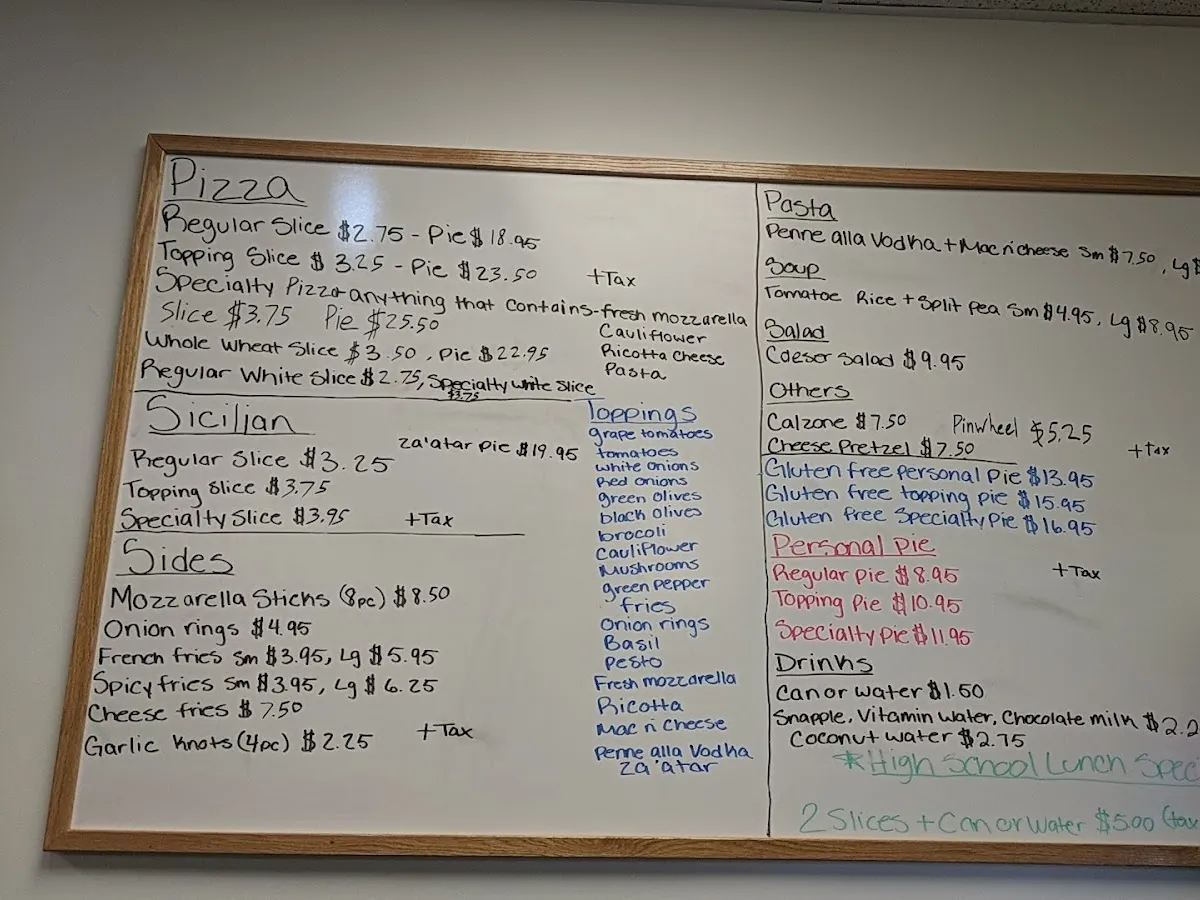 Pizza
Regular Slice $2.75 - Pie $18.95
Topping Slice $3.25 - Pie $23.50
+Tax
Specialty Pizza-anything that contains-fresh mozzarella
Cauliflower
Ricotta Cheese
Pasta
Slice $3.75 Pie $25.50
Whole Wheat Slice $3.50, Pie $22.95
Regular White Slice $2.75, Specialty White Slice
$3.75
Sicilian
za'atar pie $19.95
Regular Slice $3.25
Topping Slice $3.75
Specialty Slice $3.95 +Tax
Sides
Mozzarella Sticks (8pc) $8.50
Onion rings $4.95
French fries Sm $3.95, Lg $5.95
Spicy fries Sm $3.95, Lg $6.25
Cheese fries $7.50
Garlic Knots (4pc) $2.25 +Tax
Toppings
grape tomatoes
tomatoes
white onions
Red onions
green olives
black olives
brocoli
Cauliflower
Mushrooms
green pepper
fries
Onion rings
Basil
Pesto
Fresh mozzarella
Ricotta
Mac n Cheese
Penne alla Vodka
za'atar
Pasta
Penne alla Vodka + Mac n cheese Sm $7.50, Lg $
Soup
Tomatoe Rice + Split Pea Sm $4.95, Lg $8.95
Salad
Caeser Salad $9.95
Others
Calzone $7.50 Pinwheel $5.25
Cheese Pretzel $7.50 +Tax
Gluten free personal pie $13.95
Gluten free topping pie $15.95
Gluten free Specialty Pie $16.95
Personal Pie
Regular pie $8.95 +Tax
Topping Pie $10.95
Specialty Pie $11.95
Drinks
Can or water $1.50
Snapple, Vitamin Water, Chocolate milk $2.2
Coconut water $2.75
*High School Lunch Spec
2 Slices + Can or Water $5.00 (tax